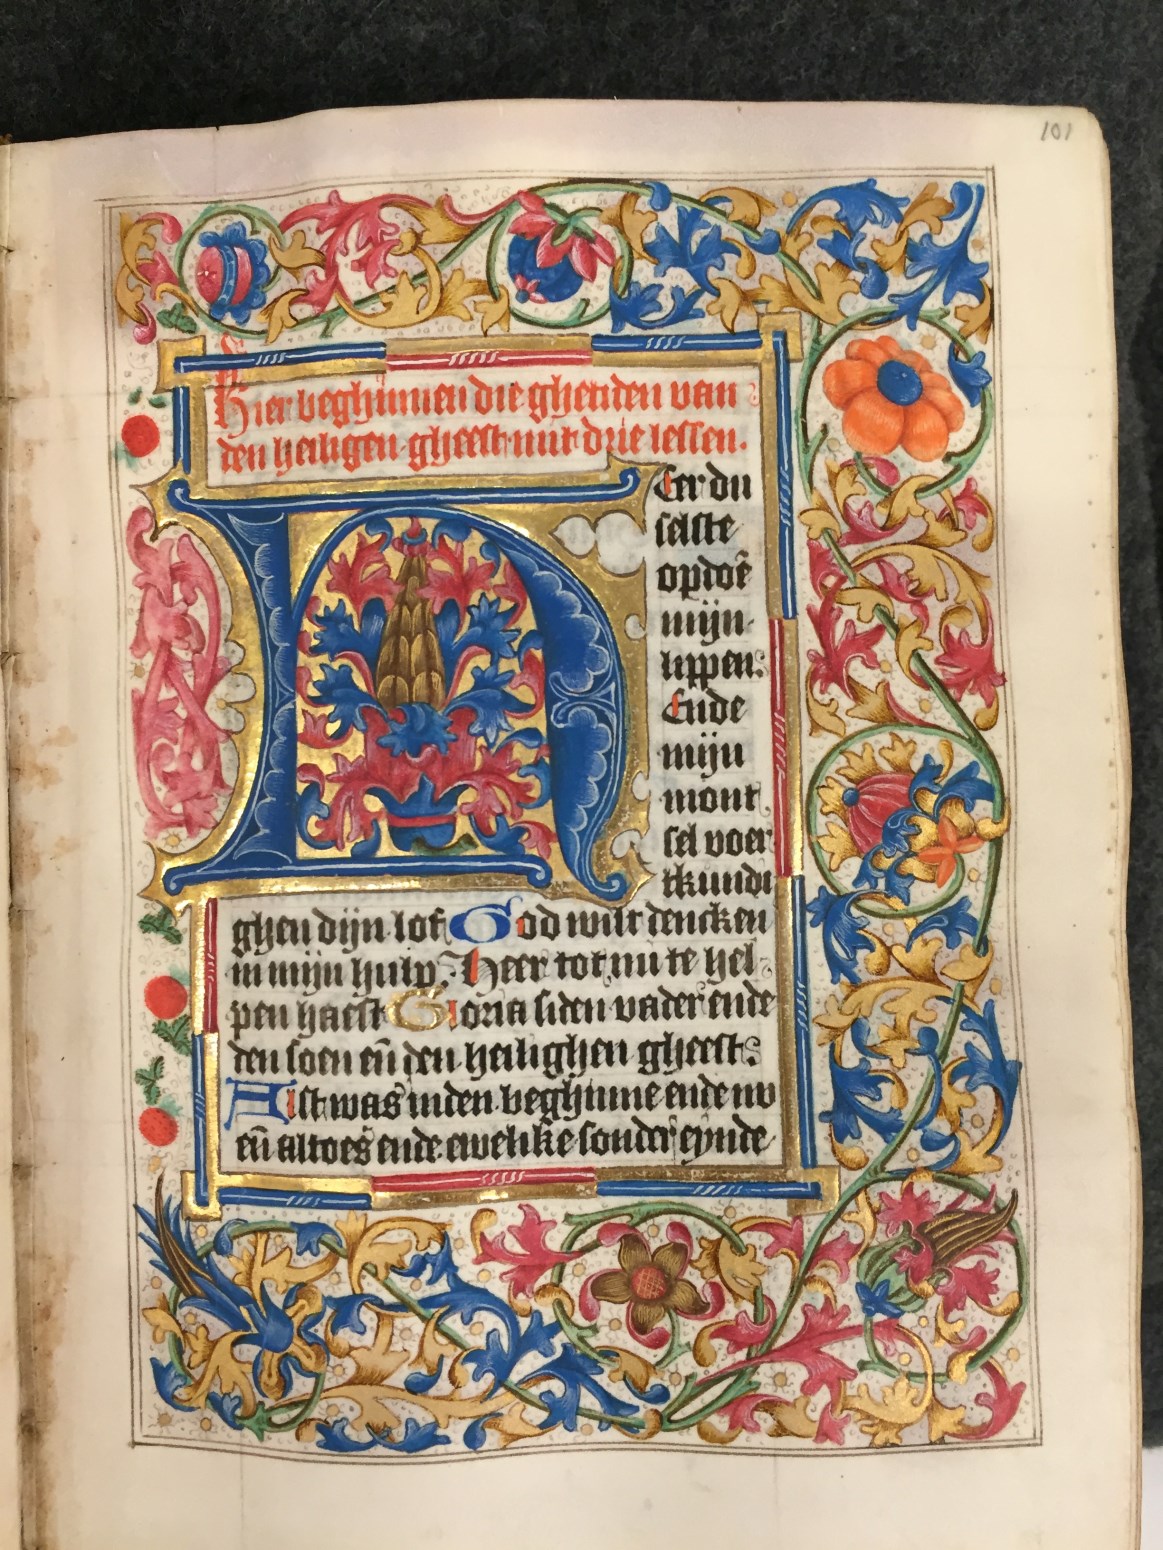 101
Hier beghinnen die ghetiden van
den heiligen gheest mit drie lessen.
Heer du
selste
opdoē
mijn
lippen:
Ende
mijn
mont
sel voer
tkundi
ghen dijn lof God wilt dencken
in mijn hulp: Heer tot mi te hel
pen haest Gloria si den vader ende
den soen eñ den heilighen gheest:
Alst was inden beghinne ende nv
eñ altoes ende ewelikē sonder eynde